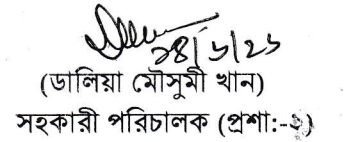 ২৪/৬/২৬
(ডালিয়া মৌসুমী খান)
সহকারী পরিচালক (প্রশা:-২)